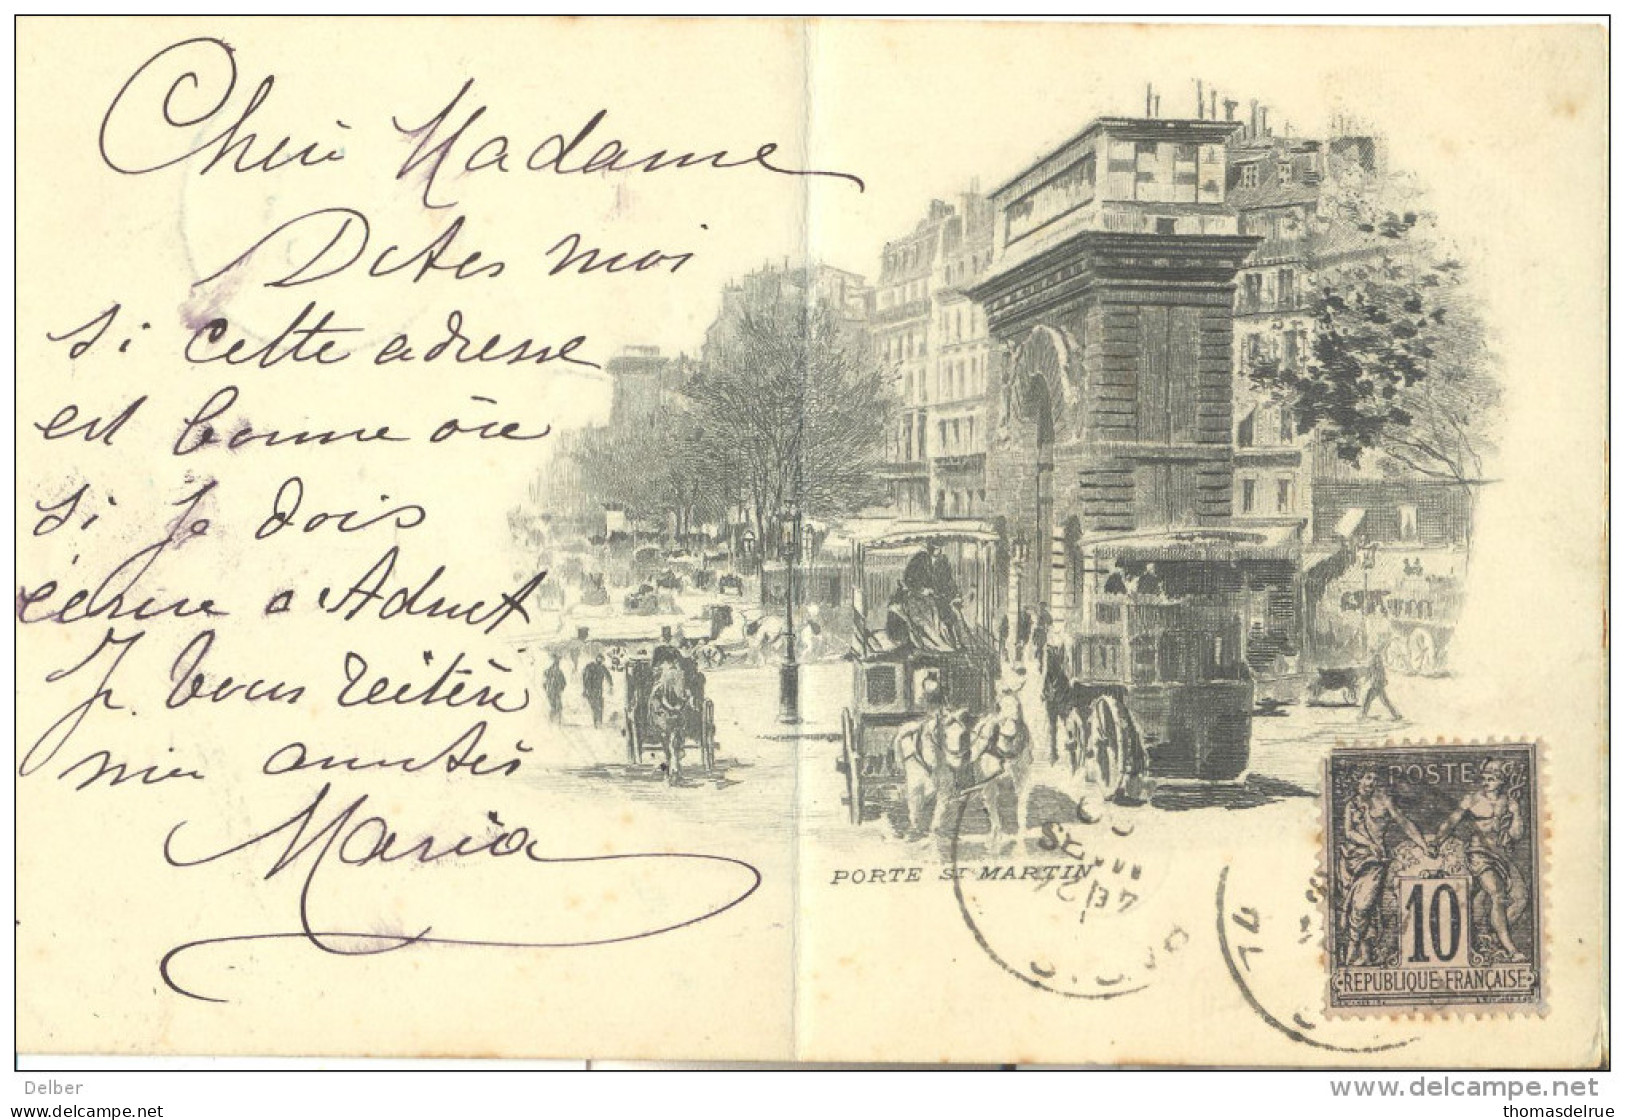 Chère Madame
Dites moi
si cette adresse
est bonne ou
si je dois
écrire a
Je vous réitère
mes amitiés
Maria
PORTE ST MARTIN
POSTE
10
REPUBLIQUE FRANÇAISE
Delber
www.delcampe.net
thomasdelrue